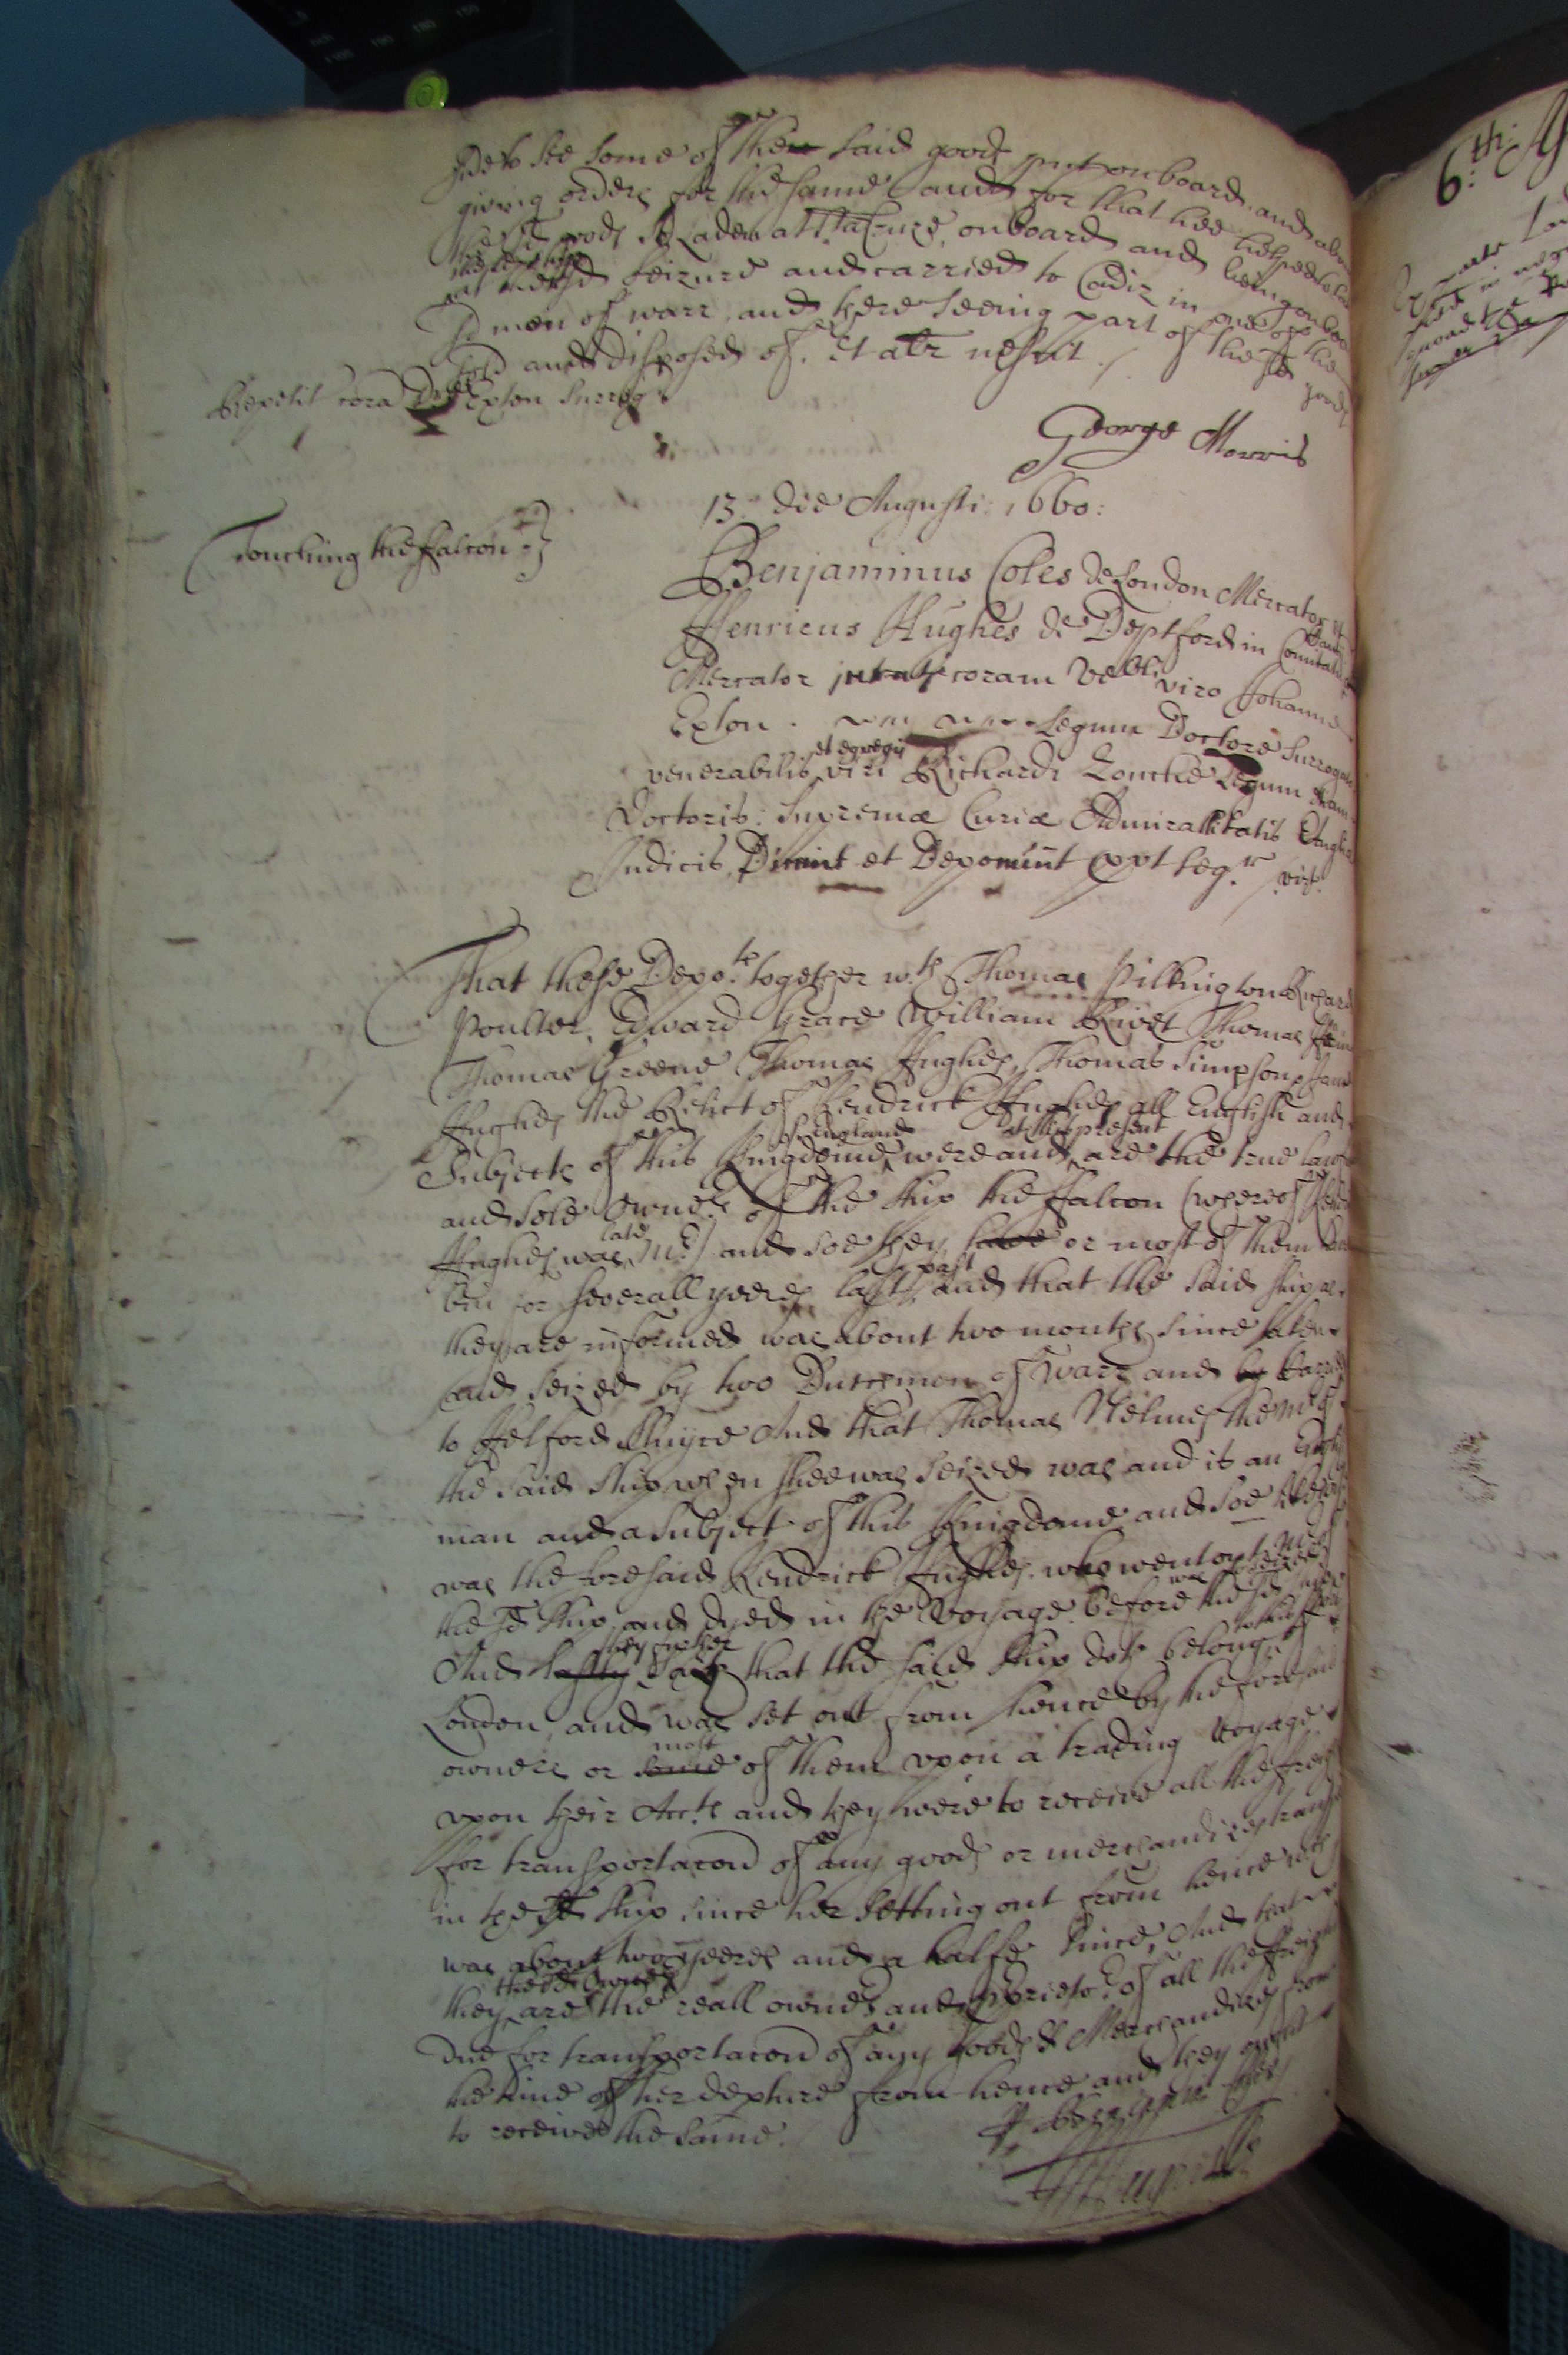 did see some of the said goods put onboard, and also
giving orders for the same and for that hee helped
the sd goods laden at onboard and being onboard
the sd shipp
at the sd seizure and carried to Cadiz in one of the
sd men of warr and there seeing part of the sd goods
sold and disposed of. Et alr nescit ./
Repetit cora Dre Exton Surrog
George Morris
13.o die Augusti: 1660:
Touching the ffalcon
Benjaminus Coles de London Mercator et
Henricus Hughes de Deptford in Comitatu
Mercator jurati coram Vebli viro Johanne
Exton Legum Doctore Surrogato
et egregij
venerabilis viri Richardi Zouche Legum etiam
Doctoris: Supremæ Curiæ Admirallitatis Angliæ
Judicis, Dicunt et Deponunt ppt seqr. vizt.
That these Depo.ts together wth Thomas Pilkington Richard
Poulter, Edward Grace William Rivet Thomas
Thomas Greene Thomas Hughes, Thomas Simpson, Jane
Hughes the Relict of Kendrick Hughes all English and
of England at this present
Subjects of this Kingdome were and are the true lawfull
and sole owners of the ship the ffalcon (whereof Kendrick
late
Hughes was Mr.) and soe they have or most of them have
past
bin for severall yeeres last and that the said ship as
they are informed was about two months since taken
and seized by two Dutch men of warr and by carried
to Helford Sluyce And that Thomas Helmes the Mr of
the said ship when shee was seized was and is an English
man and a subject of this Kingdome and soe alsoe
was the foresaid Kendrick Hughes. who went out Mr of
was seized
the sd ship and dyed in the voyage before the sd ship
they further to this Port of
And lastly say that the said ship doth belong
London and was set out from hence by the foresaid
most
owners or some of them upon a trading voyage
upon their Acc.ts and they were to receive all the freight
for transportacon of any goods or merchandizes transported
in the sd ship since her setting out from hence wch
was about two yeeres and a halfe since, And that
the sd Owners
they are the reall owners and proprieto.rs of all the freight
due for transportacon of any goods & Merchandizes from
the time of her depture from hence and they ought
to receive the same.
Benjamin Coles
H Hughes
6.th